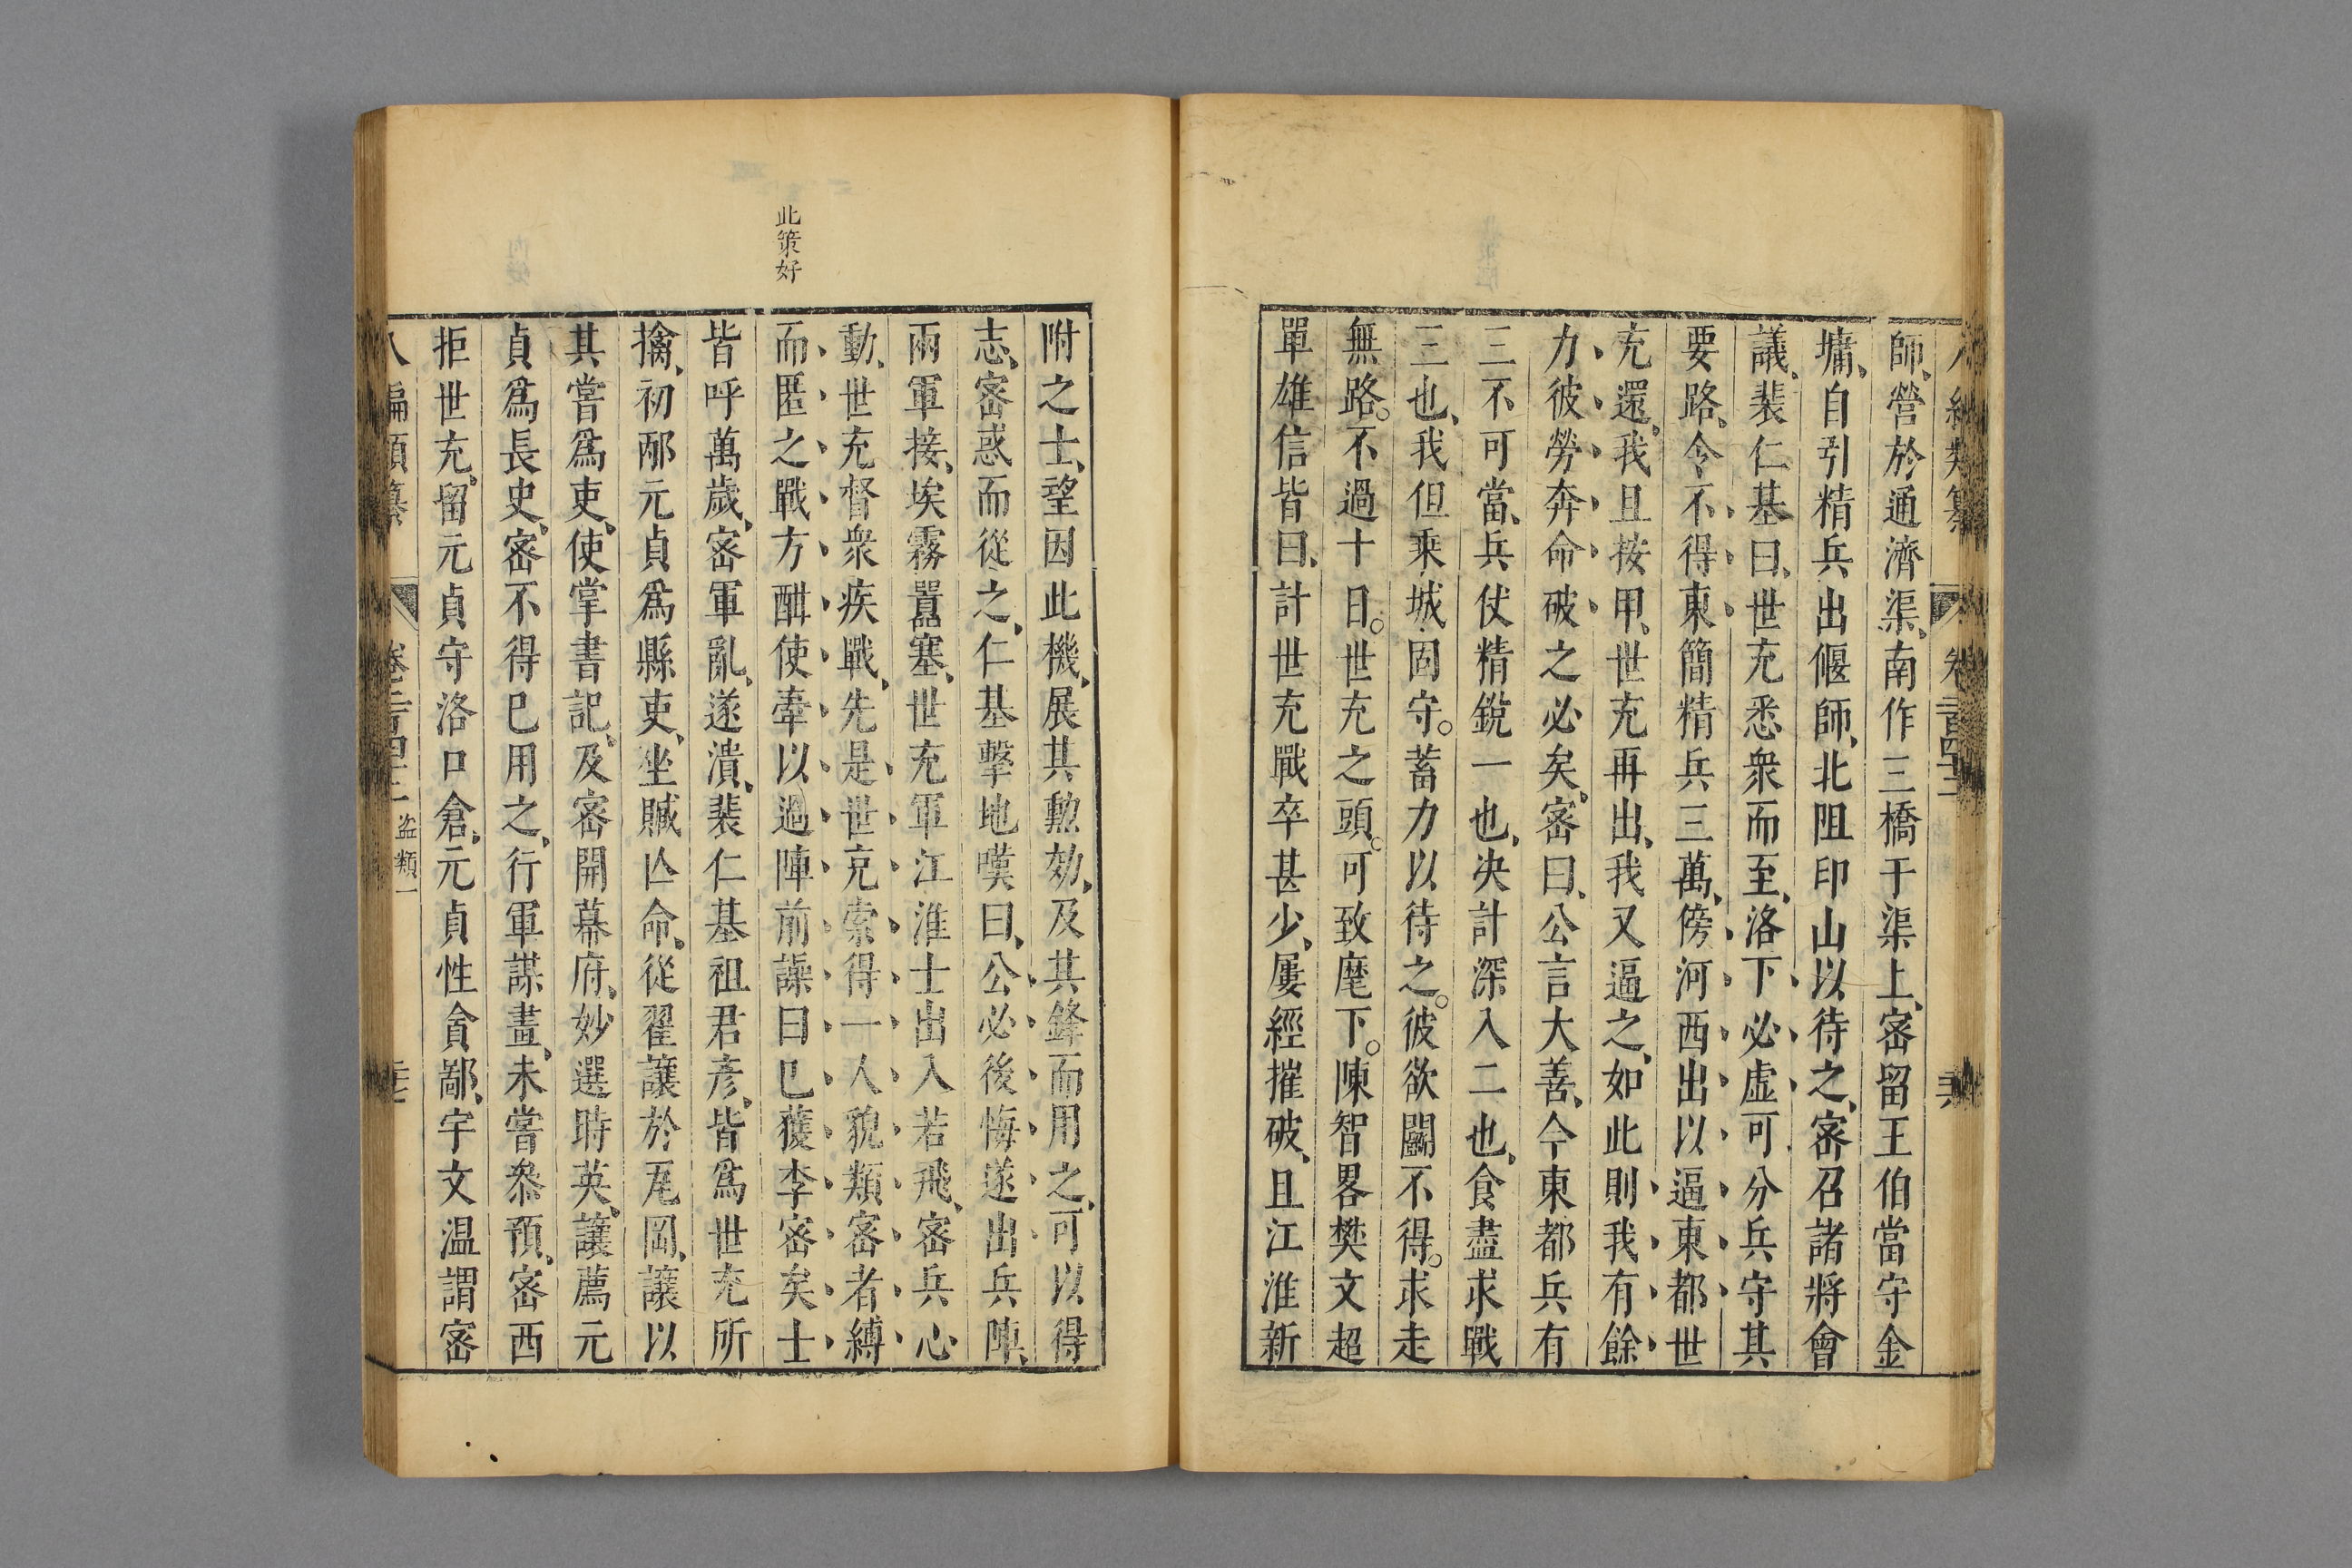 師營於通濟渠南作三橋于渠上密留王伯當守金
墉自引精兵出偃師北阻印山以待之密召諸將會
議裴仁基曰世充悉衆而至洛下必虛可分兵守其
要路令不得東簡精兵三萬傍河西出以逼東都世
充還我且按甲世充再出我又逼之如此則我有餘
力彼勞奔命破之必矣密曰公言大善今東都兵有
三不可當兵仗精銳一也決計深入二也食盡求戰
三也我但乘城固守蓄力以待之彼欲鬭不得求走
無路不過十日世充之頭可致麾下陳智畧樊文超
單雄信皆曰計世充戰卒甚少屢經摧破且江淮新
此策好
附之士望因此機展其勲効及其鋒而用之可以得
志密惑而從之仁基擊地嘆曰公必後悔遂出兵陣
兩軍接埃霧囂塞世充軍江淮士出入若飛密兵心
動世充督衆疾戰先是世充索得一人貌類密者縛
而匿之戰方酣使牽以過陣前譟曰已獲李密矣士
皆呼萬歲密軍亂遂潰裴仁基祖君彥皆爲世充所
擒初邴元貞爲縣吏坐贓亾命從翟讓於瓦岡讓以
其嘗爲吏使掌書記及密開幕府妙選時英讓薦元
貞爲長史密不得已用之行軍謀畫未嘗叅預密西
拒世充留元貞守洛口倉元貞性貪鄙宇文温謂密
八編類纂 盗類一